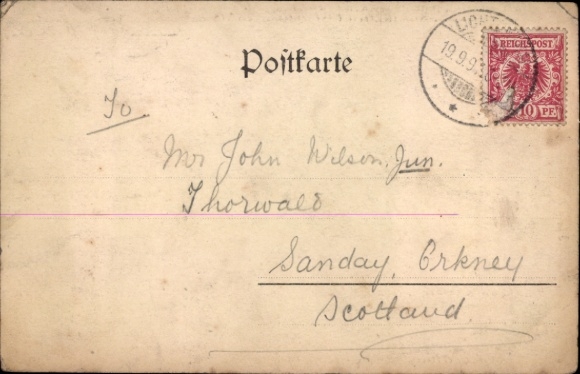 REICHSPOST
19.9.9
10 PF
Postkarte
To
Mr John Wilson, Jun.
Thorwald
Sanday, Orkney
Scotland.